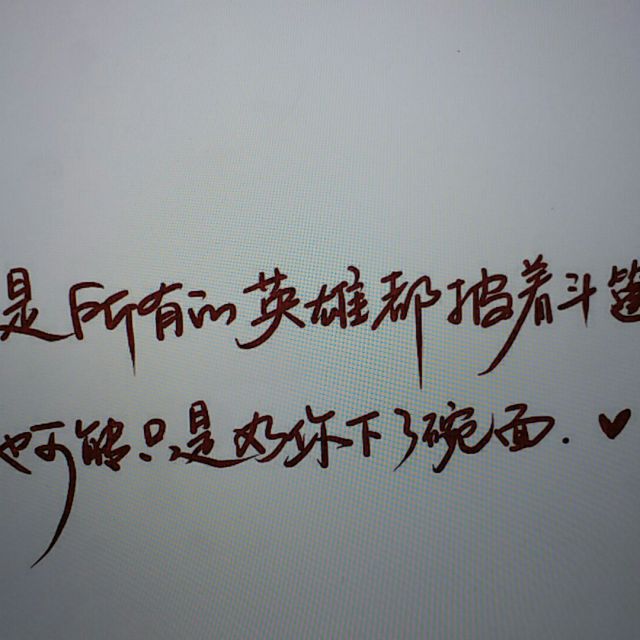 是所有的英雄都披着斗篷
也可能只是为你下了碗面.♥